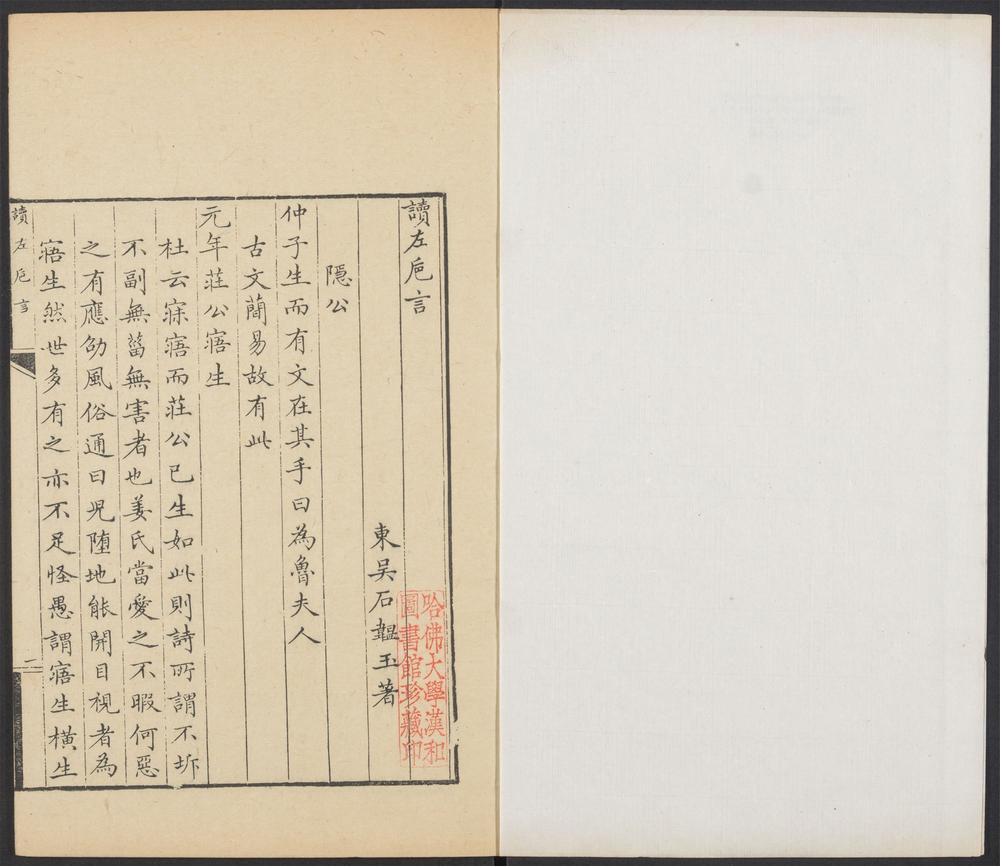 讀左巵言
東吳石韞玉著
隱公
仲子生而有文在其手曰為魯夫人
古文簡易故有此
元年莊公寤生
杜云寐寤而莊公已生如此則詩所謂不坼
不副無菑無害者也姜氏當愛之不暇何惡
之有應劭風俗通曰兒墮地能開目視者為
寤生然世多有之亦不足怪愚謂寤生橫生
讀左巵言
二
哈佛大學漢和
圖書館珍藏印